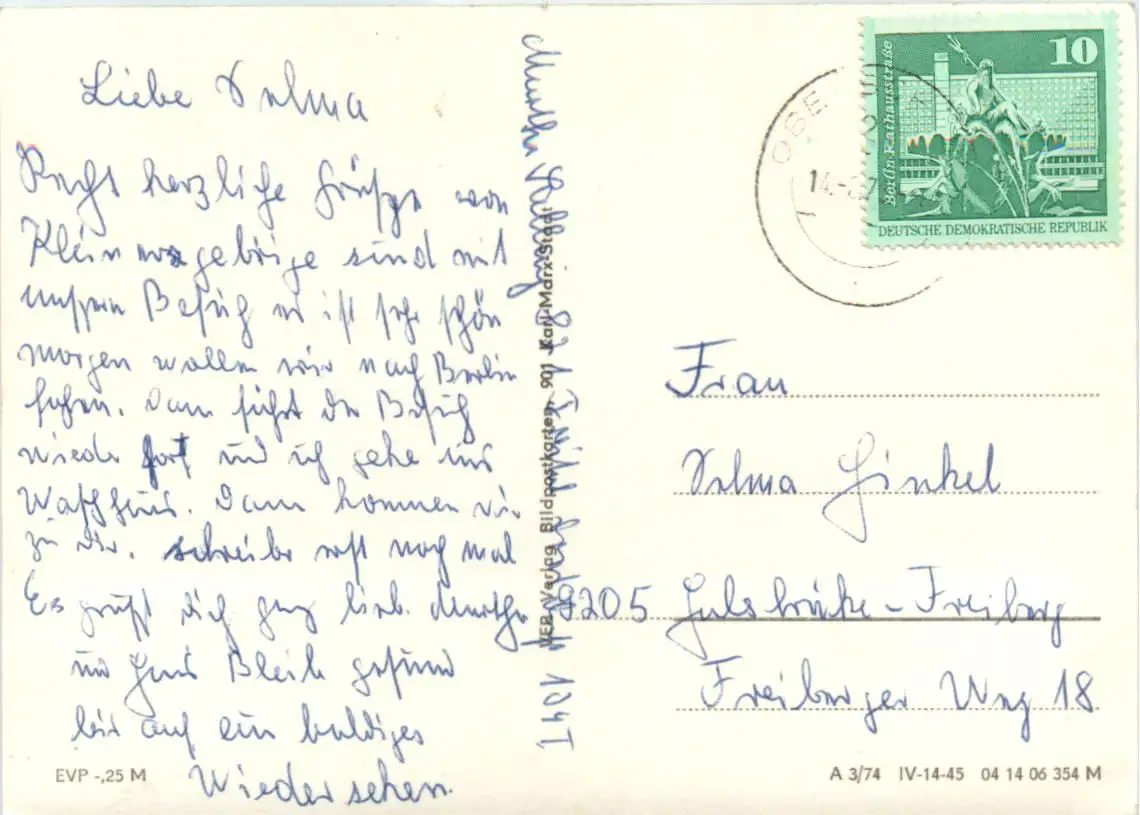 Liebe Selma
Recht herzliche Grüße von
Klein gebirge sind mit
unsren Besuch es ist sehr schön
morgen wollen wir nach Berlin
fahren. Dann fährt der Besuch
wieder fort und ich gehe ins
Waschhaus. Dann kommen wir
zu dir. schreibe erst noch mal
Es grüßt dich ganz lieb. Martha
und Hans Bleib gesund
bis auf ein baldiges
Wiedersehen.
EVP -,25 M
Martha 821
VEB Verlag Bildpostkarten, 901 Karl-Marx-Stadt
10
Berlin, Rathausstraße
DEUTSCHE DEMOKRATISCHE REPUBLIK
OBE
14.-8.7
Frau
Selma Hinkel
9205 Hilsbrücke - Freiberg
Freiberger Weg 18
A 3/74 IV-14-45 04 14 06 354 M